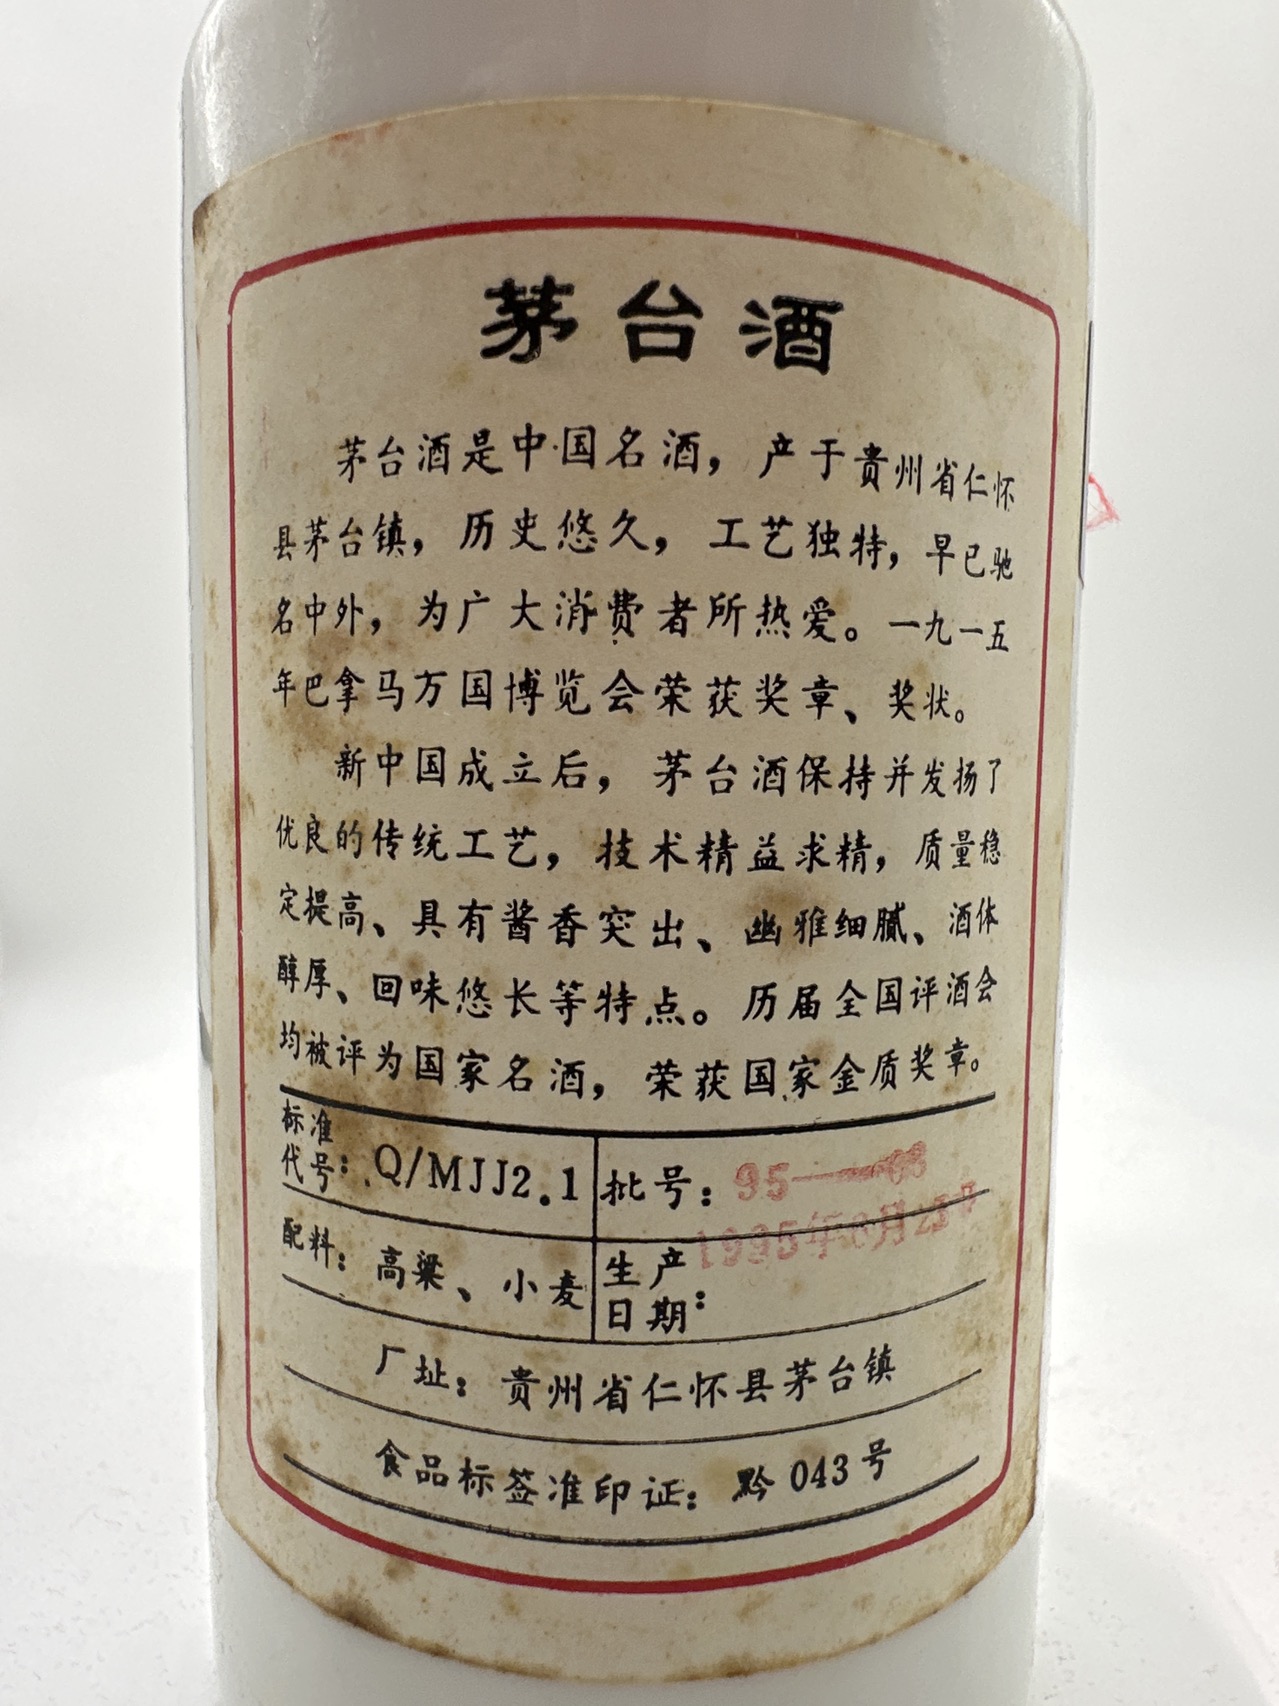 茅台酒
茅台酒是中国名酒，产于贵州省仁怀
县茅台镇，历史悠久，工艺独特，早已驰
名中外，为广大消费者所热爱。一九一五
年巴拿马万国博览会荣获奖章、奖状。
新中国成立后，茅台酒保持并发扬了
优良的传统工艺，技术精益求精，质量稳
定提高、具有酱香突出、幽雅细腻、酒体
醇厚、回味悠长等特点。历届全国评酒会
均被评为国家名酒，荣获国家金质奖章。
标准代号：Q/MJJ2.1
批号：95—
配料：高粱、小麦
生产日期：1995年 月
厂址：贵州省仁怀县茅台镇
食品标签准印证：黔043号